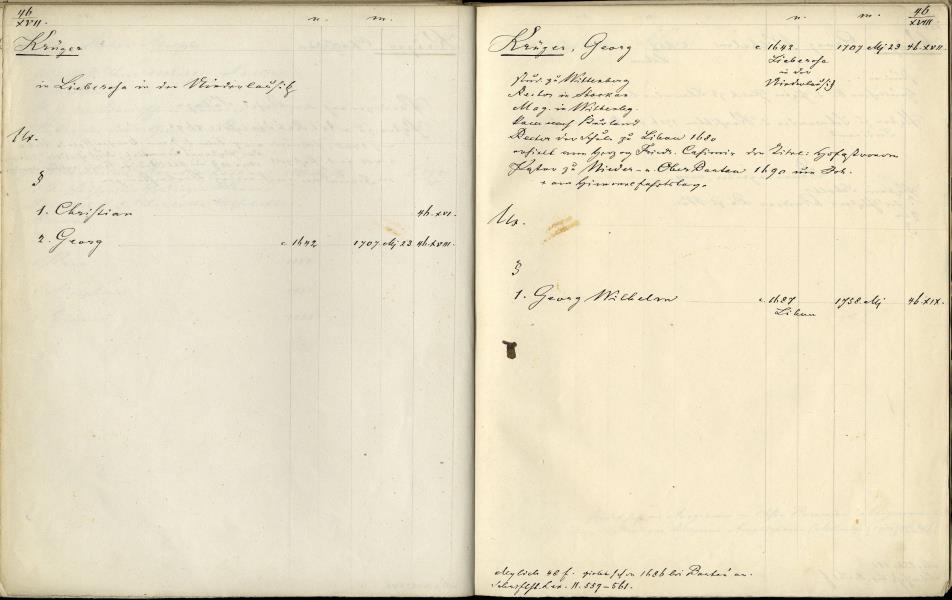 46
XVII.
n. m.
Krüger
in Lieberosa in der Niederlausitz
Ux.
1. Christian 46.XVI.
2. Georg c. 1642 1707 Mj 23 46.XVIII.
n. m. 46
XVIII
Krüger, Georg c. 1642 1707 Mj 23 46.XVII.
Lieberosa
in der
Niederlausitz
stud. zu Wittenberg
Rector in
Mag. in Wittenbg.
kam nach Kurland
Rector der Schule zu Libau 1680
erhielt vom Herzog Friedr. Casimir den Titel:
Pastor zu Nieder- u. Ober Bartau 1690 um Joh.
+ am Himmelfahrtstage.
Ux.
1. Georg Wilhelm c. 1687 1758 Mj 46.XIX.
Libau
48 f. 1686 bei Bartau an.
Lex. II. 559-561.